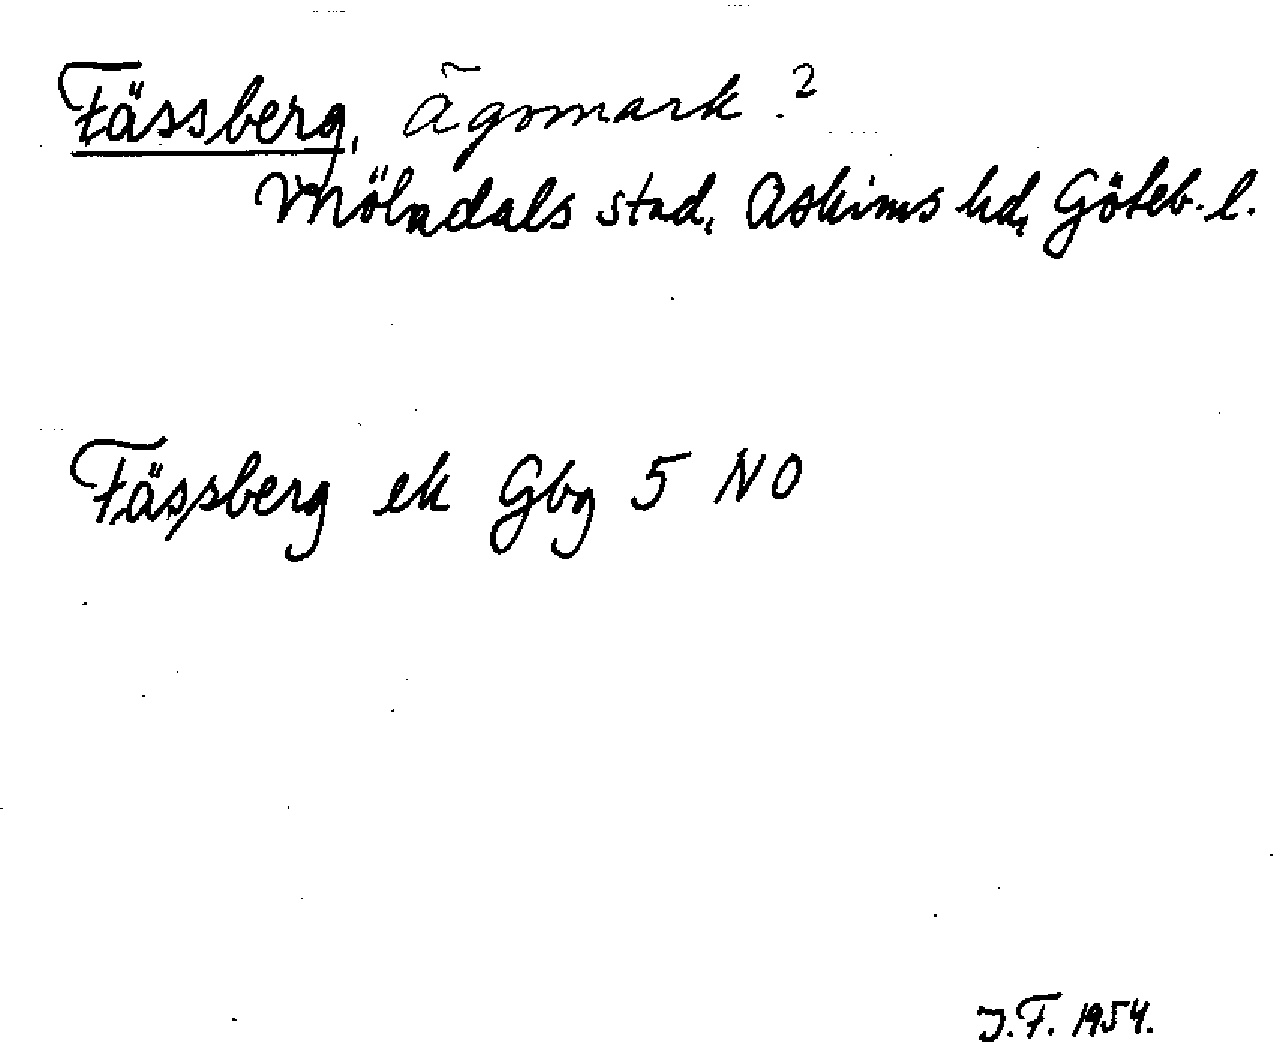 Fässberg, Ägomark?
Mölndals stad, Askims hd, Göteb. l.
Fässberg ek Gbg 5 NO
J.F. 1954.